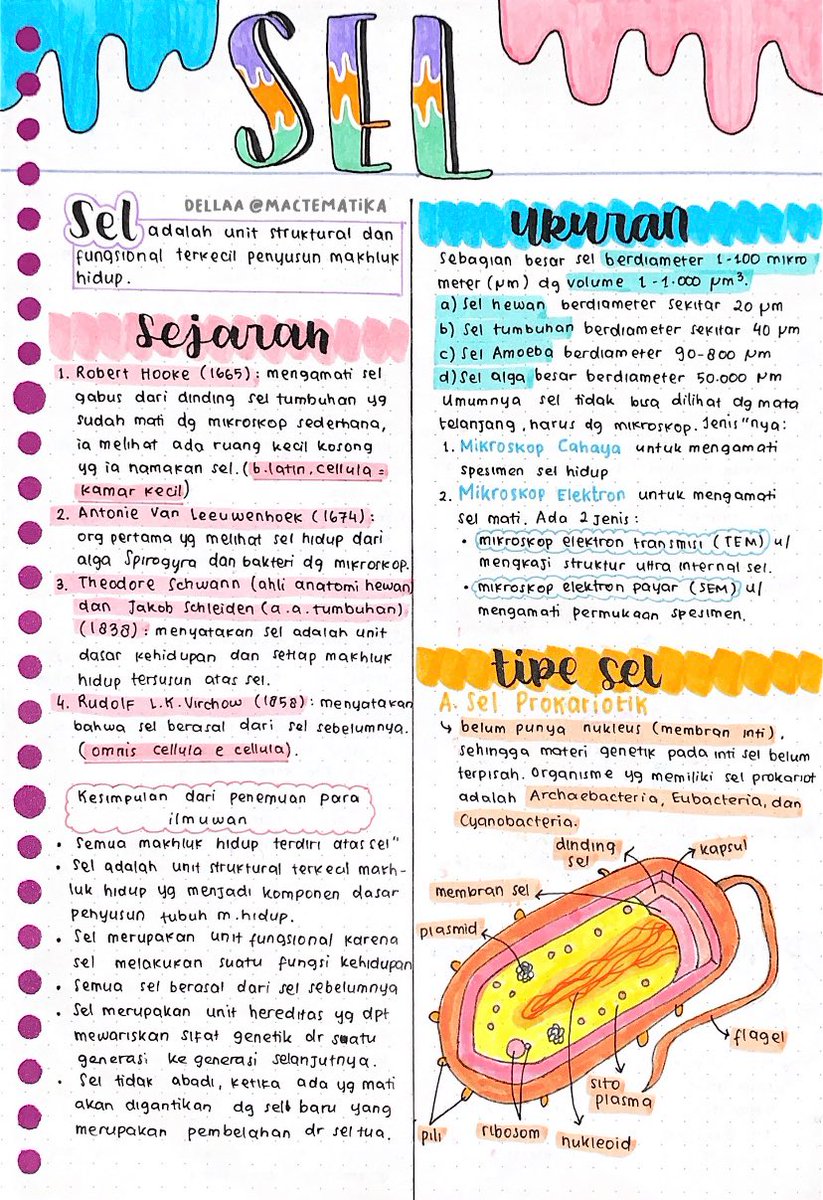 SEL
DELLAA @MACTEMATIKA
Sel adalah unit struktural dan
fungsional terkecil penyusun makhluk
hidup.
Sejarah
1. Robert Hooke (1665) : mengamati sel
gabus dari dinding sel tumbuhan yg
sudah mati dg mikroskop sederhana,
ia melihat ada ruang kecil kosong
yg ia namakan sel. (b.latin, cellula =
kamar kecil)
2. Antonie Van Leeuwenhoek (1674) :
org pertama yg melihat sel hidup dari
alga Spirogyra dan bakteri dg mikroskop.
3. Theodore Schwann (ahli anatomi hewan)
dan Jakob Schleiden (a.a.tumbuhan)
(1838) : menyatakan sel adalah unit
dasar kehidupan dan setiap makhluk
hidup tersusun atas sel.
4. Rudolf L.K.Virchow (1858) : menyatakan
bahwa sel berasal dari sel sebelumnya.
(omnis cellula e cellula).
Kesimpulan dari penemuan para
ilmuwan
• Semua makhluk hidup terdiri atas sel"
• Sel adalah unit struktural terkecil makh-
luk hidup yg menjadi komponen dasar
penyusun tubuh m.hidup.
• Sel merupakan unit fungsional karena
sel melakukan suatu fungsi kehidupan
• Semua sel berasal dari sel sebelumnya
• Sel merupakan unit hereditas yg dpt
mewariskan sifat genetik dr suatu
generasi ke generasi selanjutnya.
• Sel tidak abadi, ketika ada yg mati
akan digantikan dg sel baru yang
merupakan pembelahan dr sel tua.
ukuran
Sebagian besar sel berdiameter 1-100 mikro
meter (µm) dg volume 1-1.000 µm³.
a) Sel hewan berdiameter sekitar 20 µm
b) Sel tumbuhan berdiameter sekitar 40 µm
c) Sel Amoeba berdiameter 90-800 µm
d) Sel alga besar berdiameter 50.000 µm
Umumnya sel tidak bisa dilihat dg mata
telanjang, harus dg mikroskop. Jenis"nya:
1. Mikroskop Cahaya untuk mengamati
spesimen sel hidup
2. Mikroskop Elektron untuk mengamati
sel mati. Ada 2 jenis :
• mikroskop elektron transmisi (TEM) u/
mengkaji struktur ultra internal sel.
• mikroskop elektron payar (SEM) u/
mengamati permukaan spesimen.
tipe sel
A. Sel Prokariotik
↳ belum punya nukleus (membran inti),
sehingga materi genetik pada inti sel belum
terpisah. Organisme yg memiliki sel prokariot
adalah Archaebacteria, Eubacteria, dan
Cyanobacteria.
dinding
sel
kapsul
membran sel
plasmid
flagel
sito
plasma
pili
ribosom
nukleoid